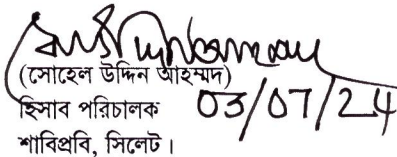 (সোহেল উদ্দিন আহম্মদ)
হিসাব পরিচালক 03/07/24
শাবিপ্রবি, সিলেট।